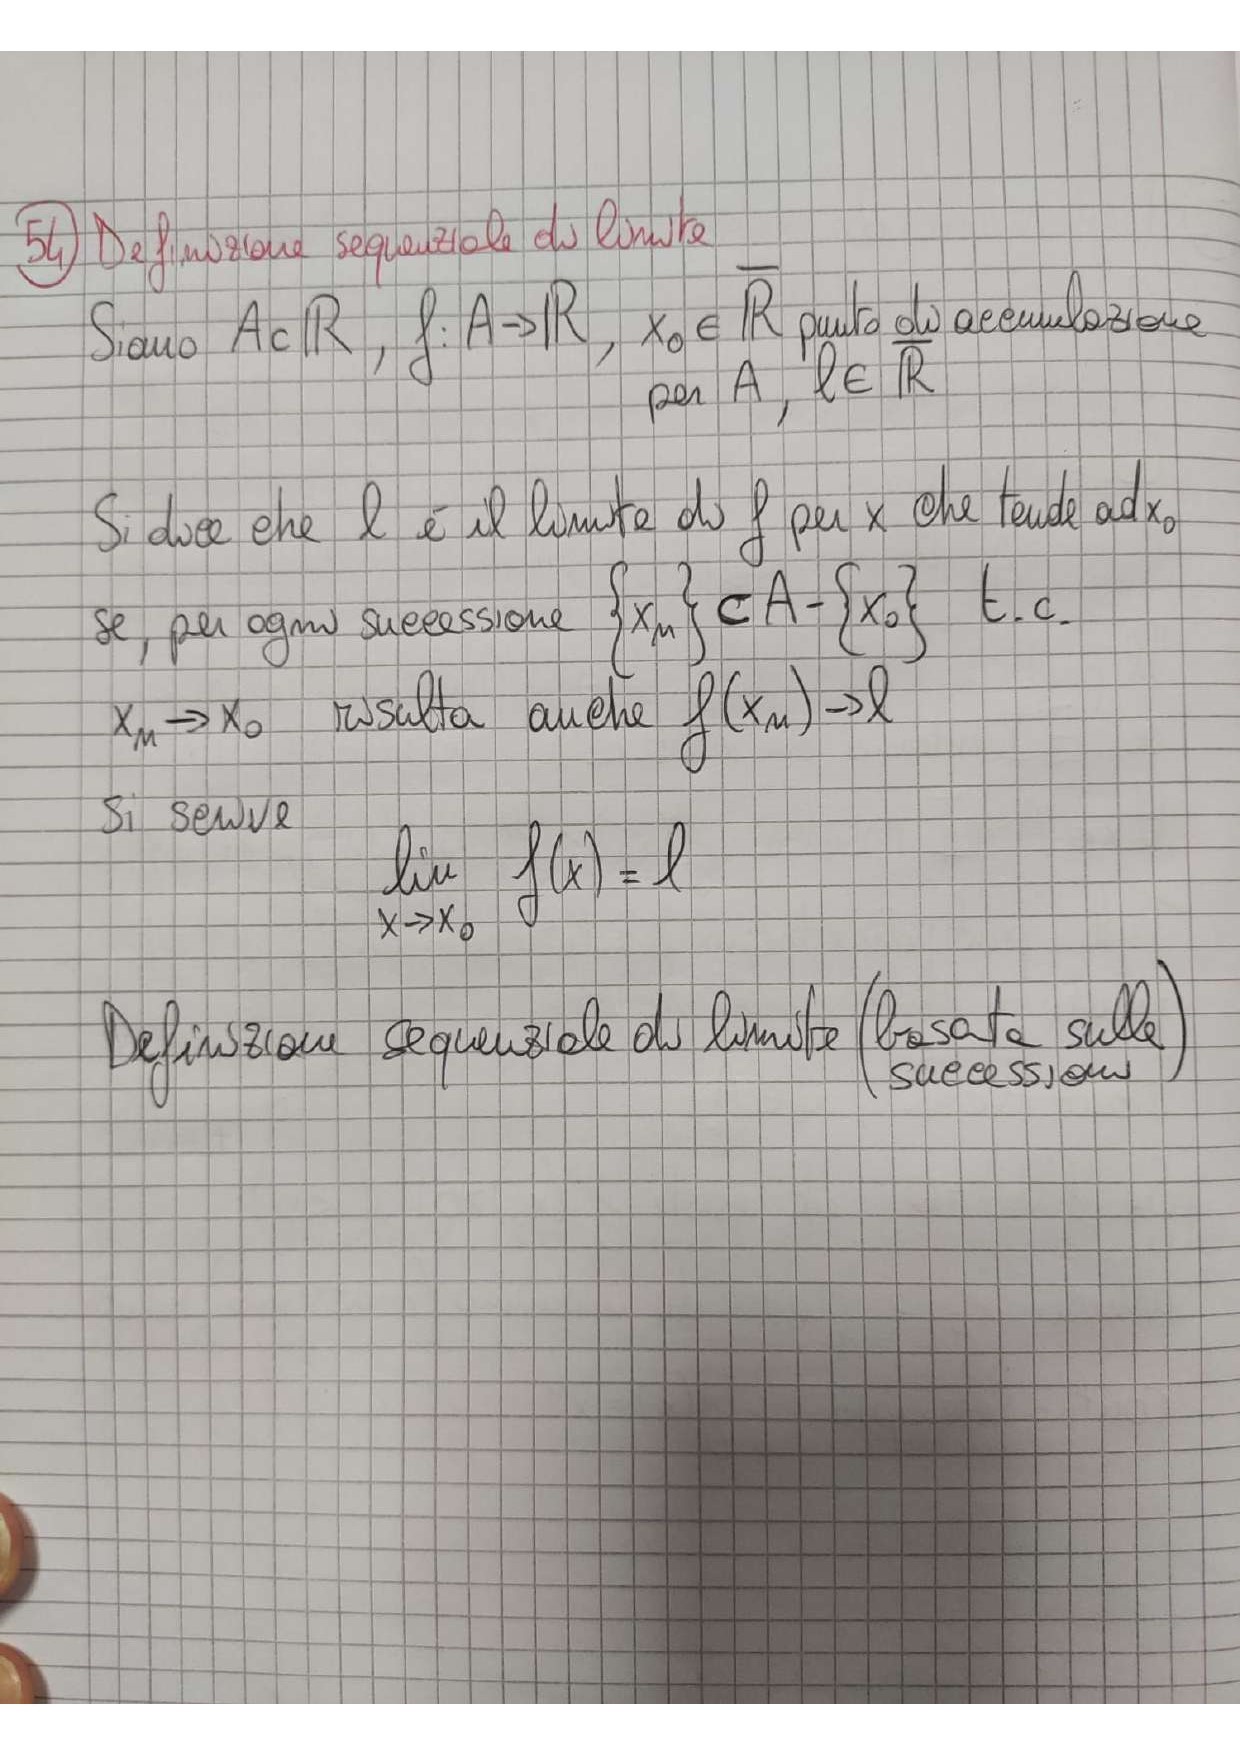 54) Definizione sequenziale di limite
Siano A⊂ℝ, f: A→ℝ, x₀∈ ℝ̅ punto di accumulazione
per A, l∈ ℝ̅
Si dice che l è il limite di f per x che tende ad x₀
se, per ogni successione {xₙ} ⊂ A-{x₀} t.c.
xₙ→x₀ risulta anche f(xₙ)→l
Si scrive
lim f(x) = l
x→x₀
Definizione sequenziale di limite (basata sulle
successioni)